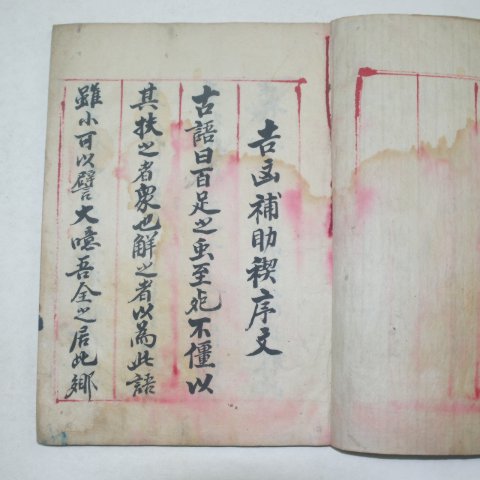 吉凶補助禊序文
古語曰百足之虫至死不僵以
其扶之者衆也解之者以爲此語
雖小可以譬大噫吾全之居此鄉